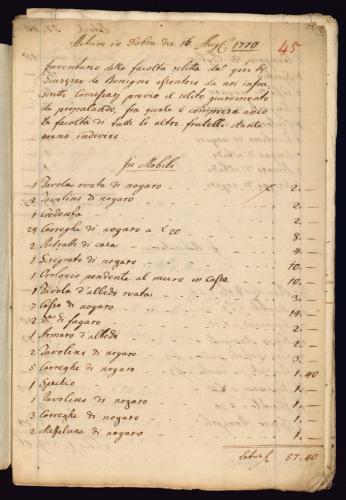 Actum in Dobra die 16 Augti 1770
45
Inventario della facoltà relitta dal qm Sr
de Benigni da noi infra
scritti Comissarj previo il solito giuramento
de propalando, fra quale è compresa anco
la facoltà di tutti li altri fratelli stante
erano indivisi.
In Mobili
1 Tavola ovata di nogaro 2. —
2 Tavolini di nogaro 2. —
1 Credenza 2. —
24 Careghe di nogaro a x 20 8. —
2 Ritratti di casa 4. —
1 di nogaro 10. —
1 Orologio pendente al muro in Cassa 10. —
1 Tavola d'albedo ovata 3. —
7 Casse di nogaro 14. —
2 di fagaro 2. —
1 Armaro d'albedo 1. —
2 Tavolini di nogaro 3. —
5 Careghe di nogaro 1. 40
1 Spechio 1. —
1 Tavolino di nogaro 1. —
3 Careghe di nogaro 1. —
2 di nogaro 1. —
Latus f 57. 40